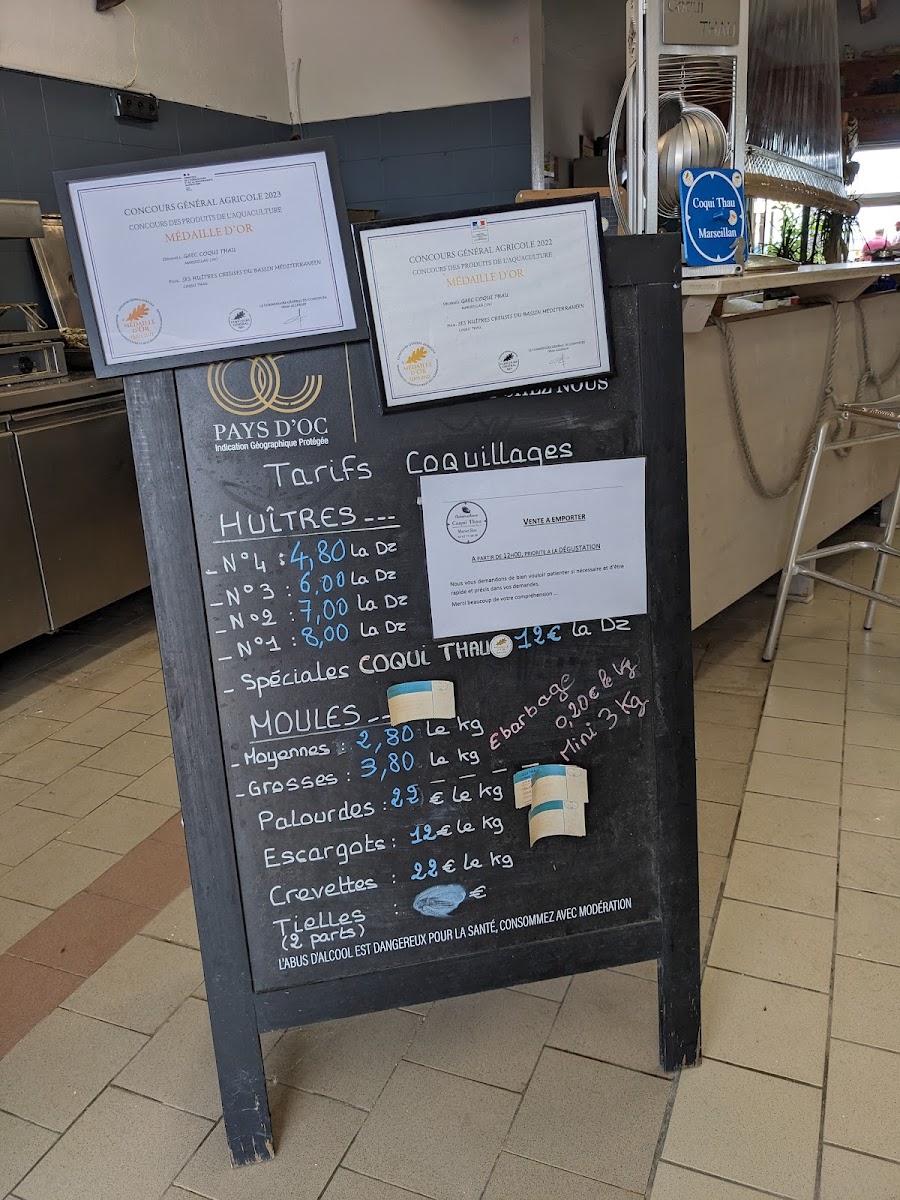 CONCOURS GÉNÉRAL AGRICOLE 2023
CONCOURS DES PRODUITS DE L'AQUACULTURE
MÉDAILLE D'OR
GAEC COQUI THAU
SES HUÎTRES CREUSES DU BASSIN MÉDITERRANÉEN
MÉDAILLE
D'OR
CONCOURS GÉNÉRAL AGRICOLE 2022
CONCOURS DES PRODUITS DE L'AQUACULTURE
MÉDAILLE D'OR
GAEC COQUI THAU
SES HUÎTRES CREUSES DU BASSIN MÉDITERRANÉEN
MÉDAILLE
D'OR
THAU
Coqui Thau
Marseillan
CHEZ NOUS
OC
PAYS D'OC
Indication Géographique Protégée
Tarifs Coquillages
HUÎTRES ---
- N°4 : 4,80 la Dz
- N°3 : 6,00 la Dz
- N°2 : 7,00 la Dz
- N°1 : 8,00 la Dz
- Spéciales COQUI THAU 12€ la Dz
Coqui Thau
Marseillan
VENTE A EMPORTER
A PARTIR DE 12H00, PRIORITE A LA DÉGUSTATION
Nous vous demandons de bien vouloir patienter si nécessaire et d'être
rapide et précis dans vos demandes.
Merci beaucoup de votre compréhension ...
MOULES ---
- Moyennes : 2,80 le kg
- Grosses : 3,80 le kg
Ebarbage
0,20€ le kg
Mini 3 Kg
Palourdes : 22 € le kg
Escargots : 12€ le kg
Crevettes : 22€ le kg
Tielles : €
(2 parts)
L'ABUS D'ALCOOL EST DANGEREUX POUR LA SANTÉ, CONSOMMEZ AVEC MODÉRATION